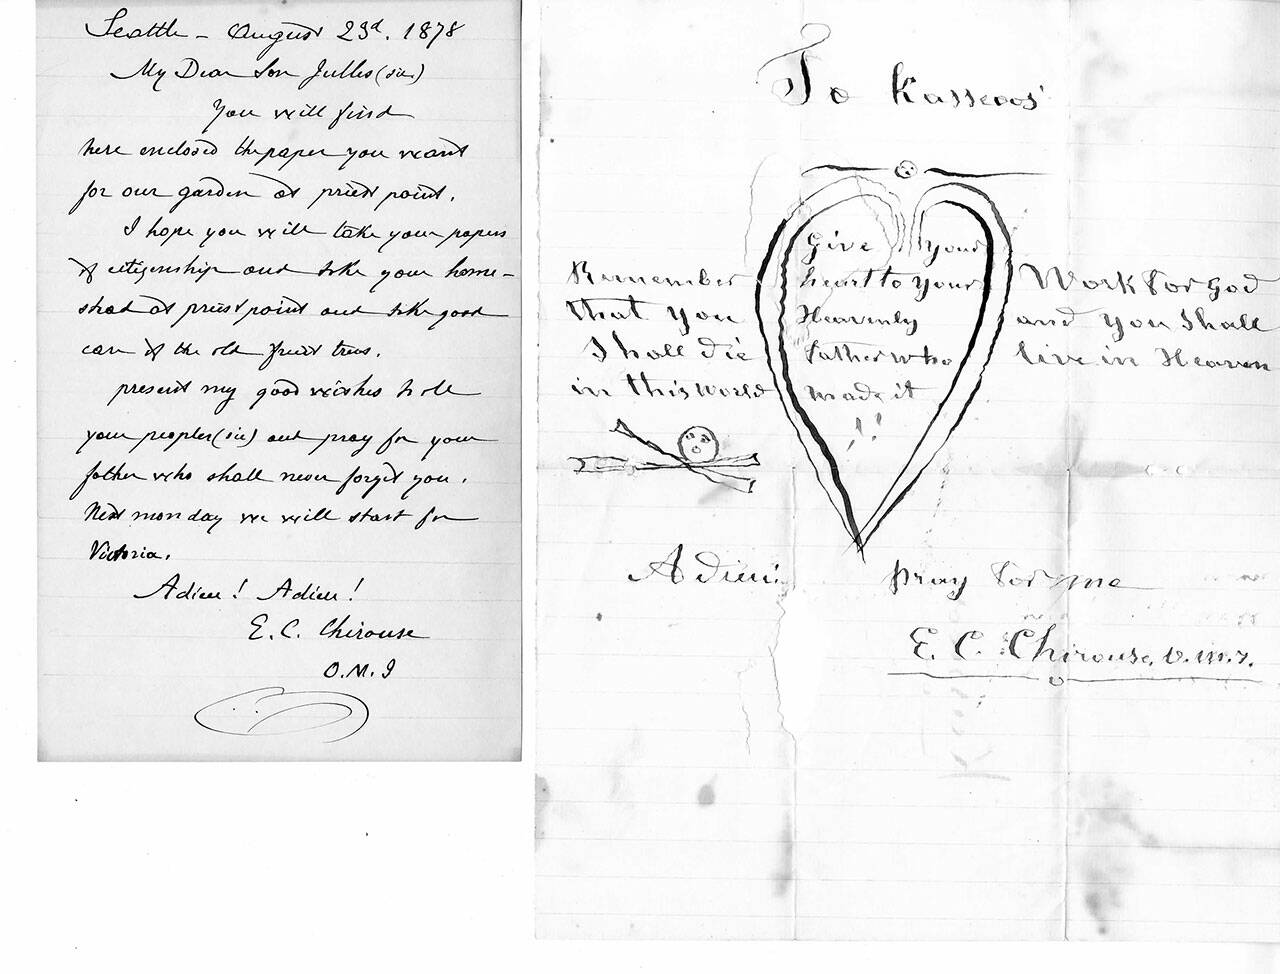 Seattle - August 23d. 1878
My Dear Son Julles (sic)
You will find
here enclosed the paper you want
for our garden at priest point.
I hope you will take your papers
of citizenship and take your home-
stead at priest point and take good
care of the old fruit trees.
present my good wishes to all
your peoples (sic) and pray for your
father who shall never forget you.
Next monday we will start for
Victoria.
Adieu! Adieu!
E. C. Chirouse
O.M.I
To Kasseoos'
Remember
that you
Shall die
in this World
Give your
heart to your
Heavenly
father who
made it
!!
Work for God
and you Shall
live in Heaven
Adieu!
pray for me
E. C. Chirouse, o.m.i.